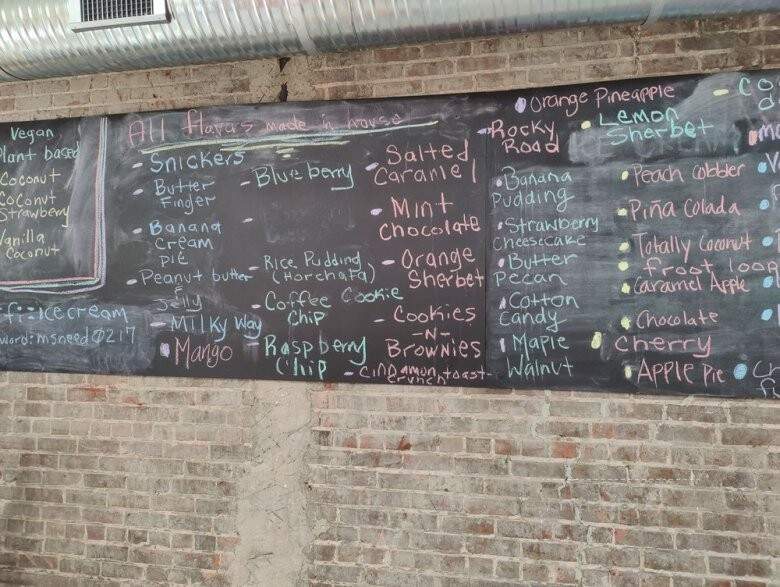 Vegan
Plant based
Coconut
Coconut
Strawberry
Vanilla
Coconut
Ice cream
msneed0217
All flavors made in house
- Snickers
- Butter
Finger
- Banana
Cream
Pie
- Peanut butter
&
Jelly
- Milky Way
- Mango
- Blueberry
-
- Rice Pudding
(Horchata)
- Coffee Cookie
Chip
- Raspberry
Chip
- Salted
Caramel
- Mint
Chocolate
- Orange
Sherbet
- Cookies
-N-
Brownies
- Cinnamon toast
crunch
- Orange Pineapple
- Rocky
Road
- Banana
Pudding
- Strawberry
Cheesecake
- Butter
Pecan
- Cotton
Candy
- Maple
Walnut
- Lemon
Sherbet
- Peach cobbler
- Piña Colada
- Totally Coconut
- froot loop
- Caramel Apple
- Chocolate
- Cherry
- Apple Pie